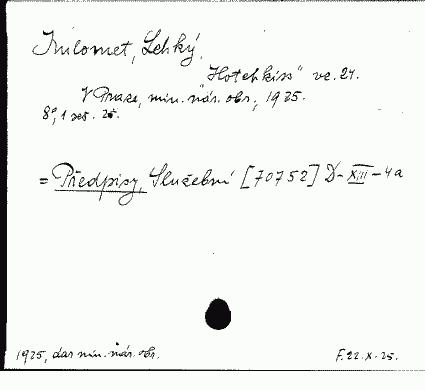 Kulomet, Lehký.
"Hotchkiss" vz. 24.
V Praze, min. nár. obr., 1925.
8°, 1 seš. 25.
= Předpisy, Služební [70752] D-XIII-4a
1925, dar min. nár. obr.
F.22.X.25.